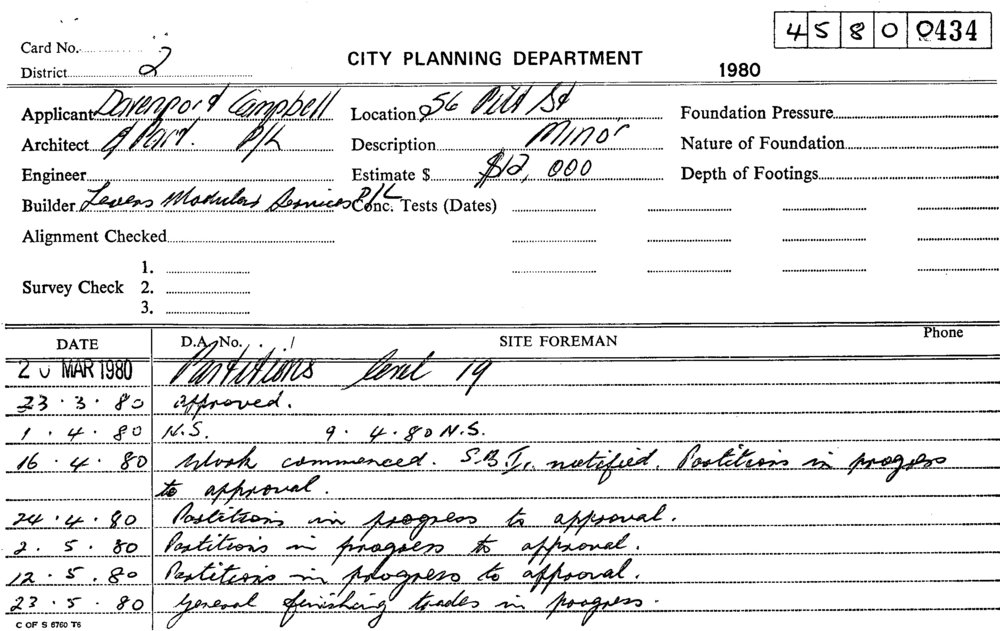 45800434
Card No.
District 2
CITY PLANNING DEPARTMENT
1980
Applicant Davenport Campbell
Location 56 Pitt St
Foundation Pressure
Architect & Part. P/L
Description Minor
Nature of Foundation
Engineer
Estimate $ $12,000
Depth of Footings
Builder Levens Modular Services P/L
Conc. Tests (Dates)
Alignment Checked
1.
Survey Check 2.
3.
DATE D.A. No. / SITE FOREMAN Phone
20 MAR 1980 Partitions level 19
23.3.80 approved.
1.4.80 N.S. 9.4.80 N.S.
16.4.80 Work commenced. S.B.I. notified. Partitions in progress
to approval.
24.4.80 Partitions in progress to approval.
2.5.80 Partitions in progress to approval.
12.5.80 Partitions in progress to approval.
23.5.80 General finishing trades in progress.
C OF S 6760 T6